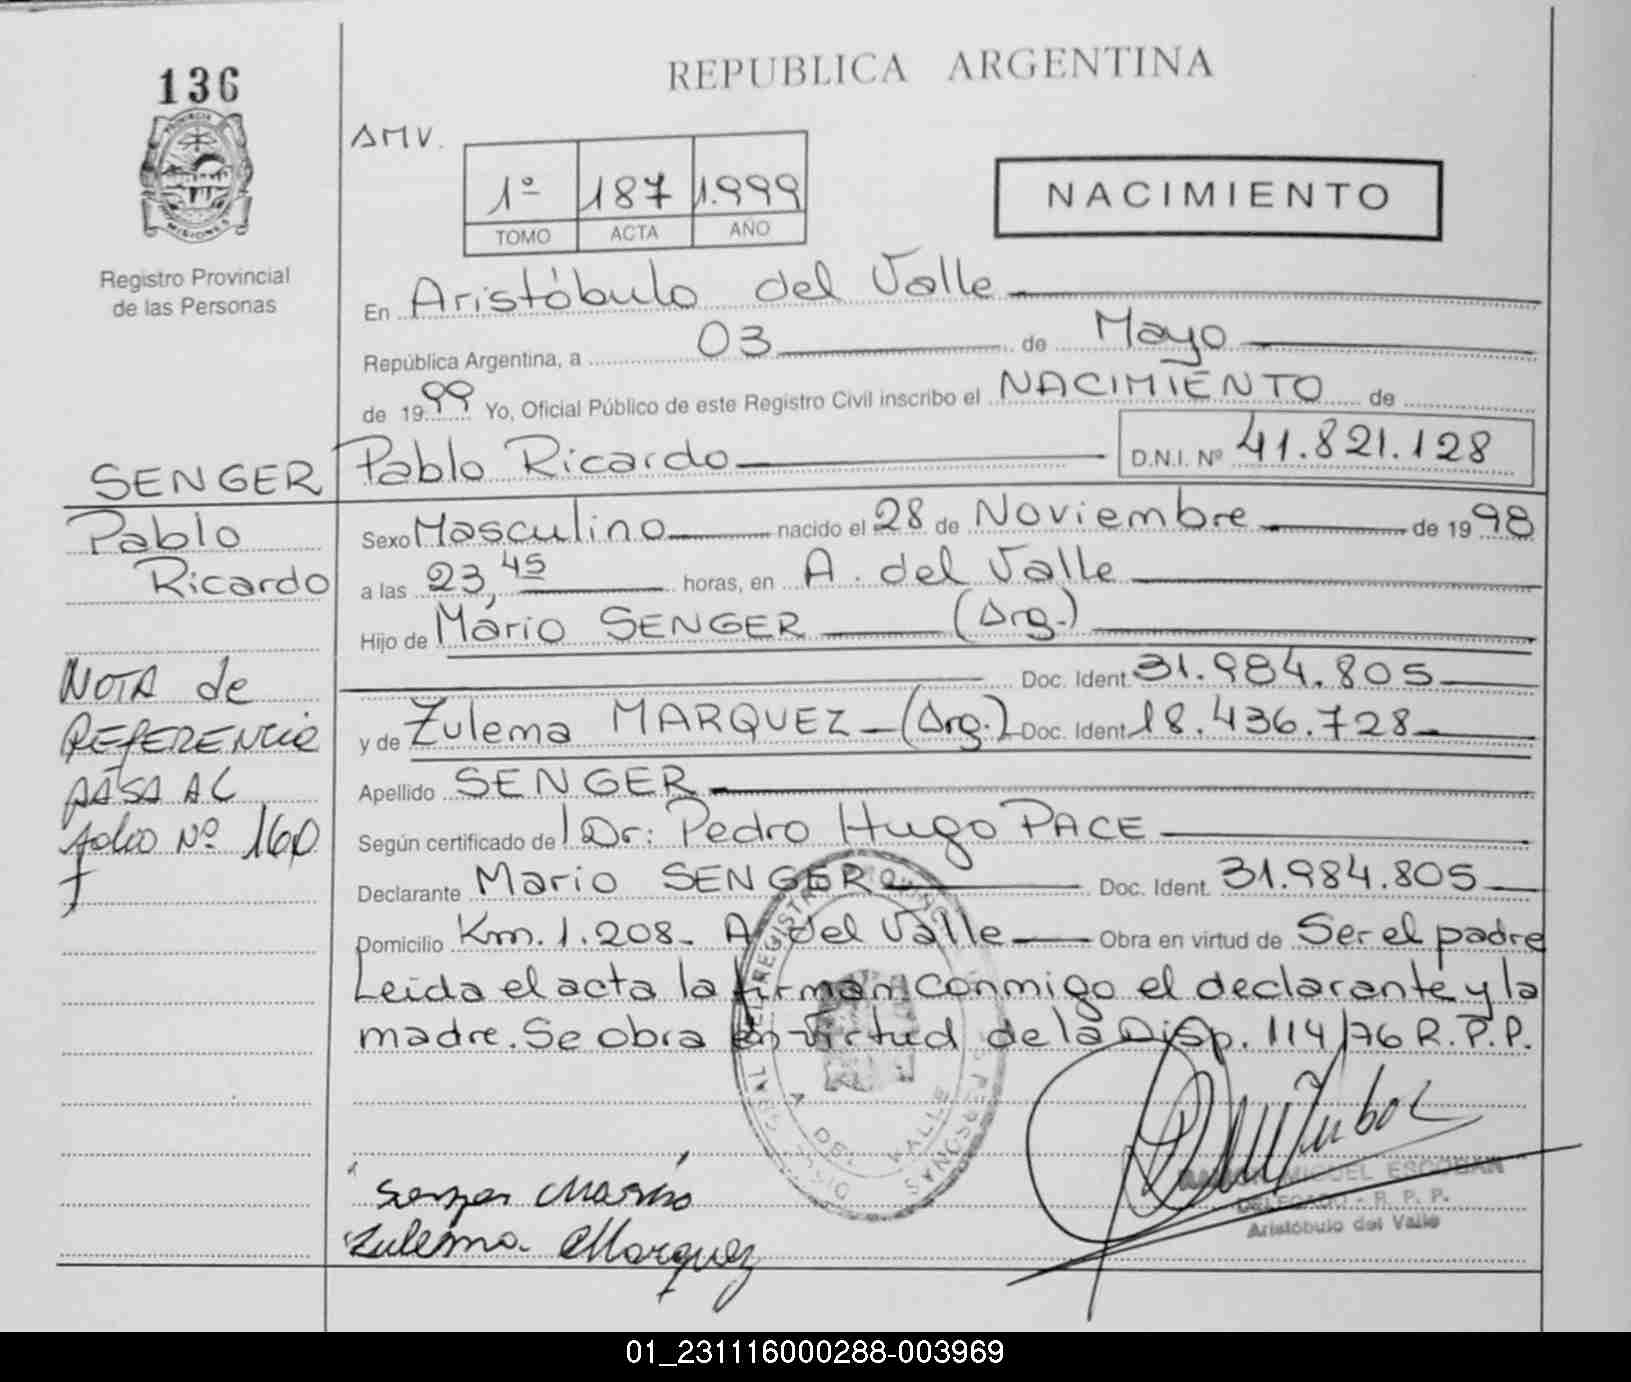 136
PROVINCIA
MISIONES
Registro Provincial
de las Personas
REPUBLICA ARGENTINA
AMV.
1º 187 1.999
TOMO ACTA AÑO
NACIMIENTO
En Aristóbulo del Valle
República Argentina, a 03 de Mayo
de 1999 Yo, Oficial Público de este Registro Civil inscribo el NACIMIENTO de
SENGER Pablo Ricardo D.N.I. Nº 41.821.128
Pablo
Ricardo
Sexo Masculino nacido el 28 de Noviembre de 1998
a las 23,45 horas, en A. del Valle
Hijo de Mario SENGER (Arg.)
Doc. Ident. 31.984.805
y de Zulema MARQUEZ (Arg.) Doc. Ident. 18.436.728
Apellido SENGER
Según certificado del Dr: Pedro Hugo PACE
Declarante Mario SENGER Doc. Ident. 31.984.805
Domicilio Km. 1.208. A del Valle Obra en virtud de Ser el padre
Leida el acta la firman conmigo el declarante y la
madre. Se obra en virtud de la Disp. 114/76 R.P.P.
NOTA de
REFERENCIA
PASA AL
folio Nº 160
Senger Mario
Zulema Marquez
A. DEL VALLE
RAMON MIGUEL ESCOBAR
DELEGADO - R. P. P.
Aristóbulo del Valle
01_231116000288-003969